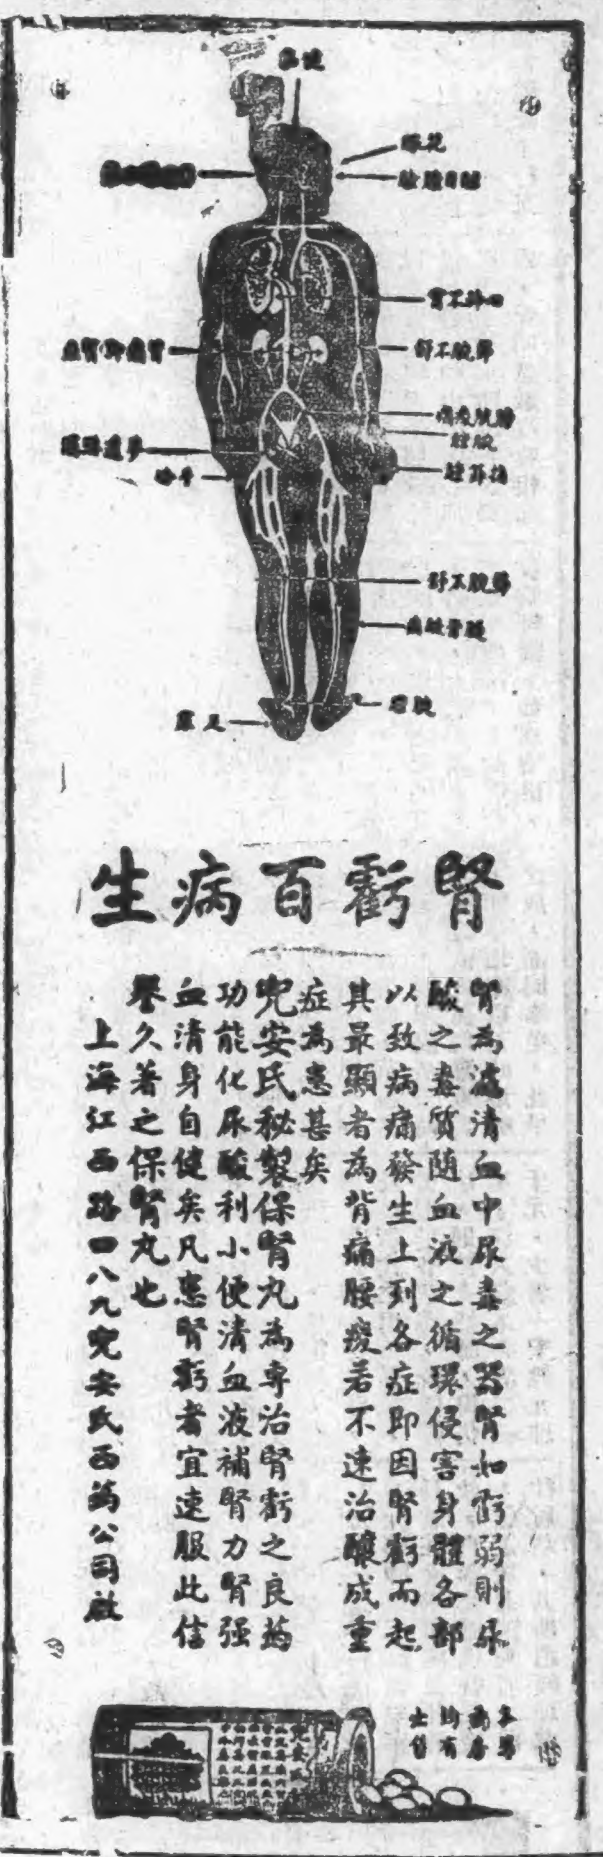 眼花
臉腫目腫
胃不舒
節腕不舒
膀胱
腕腔
節腕不舒
腿骨
足
腎虧百病生
腎為濾清血中尿毒之器腎如虧弱則尿
酸之毒質随血液之循環侵害身體各部
以致病痛發生上列各症即因腎虧而起
其最顯者為背痛腰痠若不速治釀成重
症為患甚矣
兜安氏秘製保腎丸為專治腎虧之良葯
功能化尿酸利小便清血液補腎力腎强
血清身自健矣凡患腎虧者宜速服此信
譽久著之保腎丸也
上海江西路四八九兜安氏西葯公司啟
各藥
葯房
均有
出售